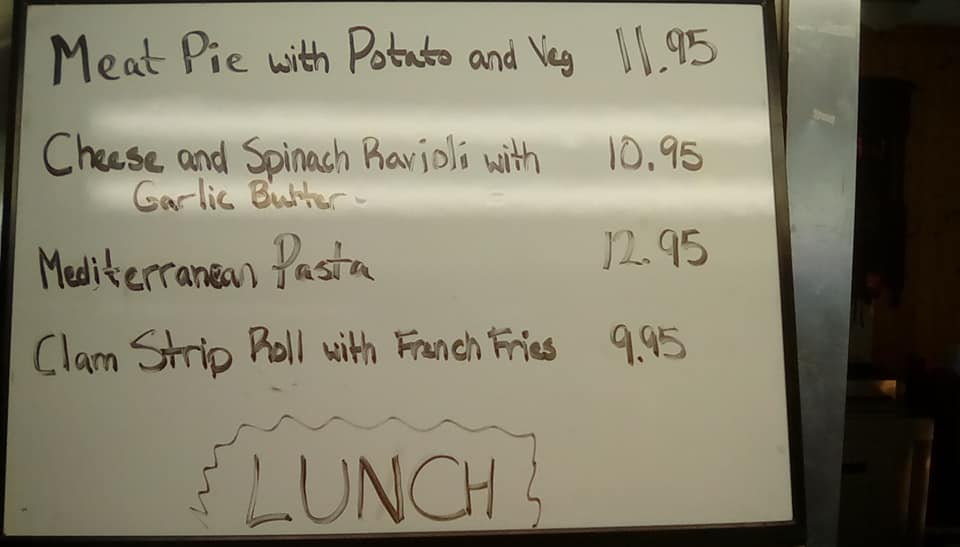 Meat Pie with Potato and Veg 11.95
Cheese and Spinach Ravioli with 10.95
Garlic Butter
Mediterranean Pasta 12.95
Clam Strip Roll with French Fries 9.95
LUNCH